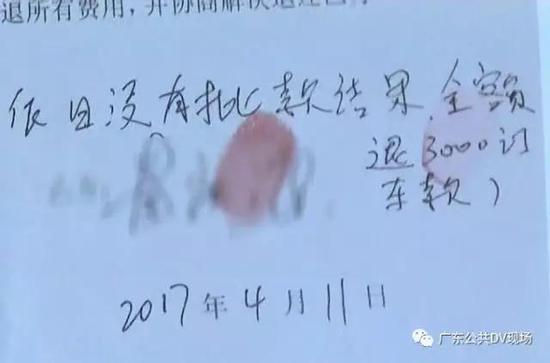 退所有费用,并协商解决退还
假日没有批款结果,全额
退3000订
车款)
2017年4月11日
广东公共DV现场